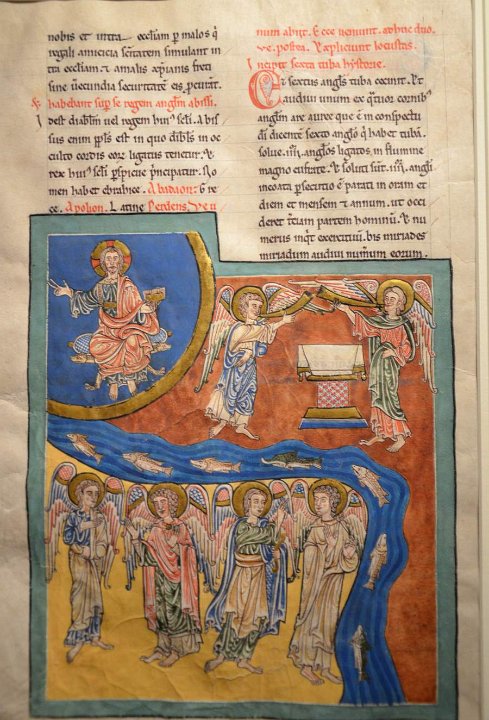 nobis et intra eccłiam ꝑ malos q̇
regali amicicia scñtatem simulant in
tra eccłiam. & amalis xp̄ianis freti
sine uecundia securitate eis ꝓcurāt.
& habebant suꝑ se regem angłm abissi
idest diabłm uel regem huiꝰ scłi. Abis
sus enim ppłs est in quo diabłs in oc
culto cordis eorꝝ ligatus tenetur. &
rex huiꝰ scłi ꝑspicue principatur. No
men habet ebraice. Abadaon: gre
ce. Apolion. Latine Perdens. Ve u
num abiit. & ecce ueniunt. adhuc duo
ue. postea. & expliciunt locustas.
Incipit sexta tuba hystorie.
Et sextus angłs tuba cecinit. Et
audiui unum ex q̇tuor cornibꝰ
angłm are auree que ē in conspectu
dī dicentē sexto angło q̇ habet tubā.
solue. iiii. angłos ligatos. in flumine
magno eufrate. & soluti sunt. iiii. angłi
incoata ꝑsecutio ē parati in oram et
diem et mensem et annum. ut occi
deret t̄ciam partem hominū. Et nu
merus inq̇t exercituū. bis miriades
miriadum audiui nūm̄um eorum.